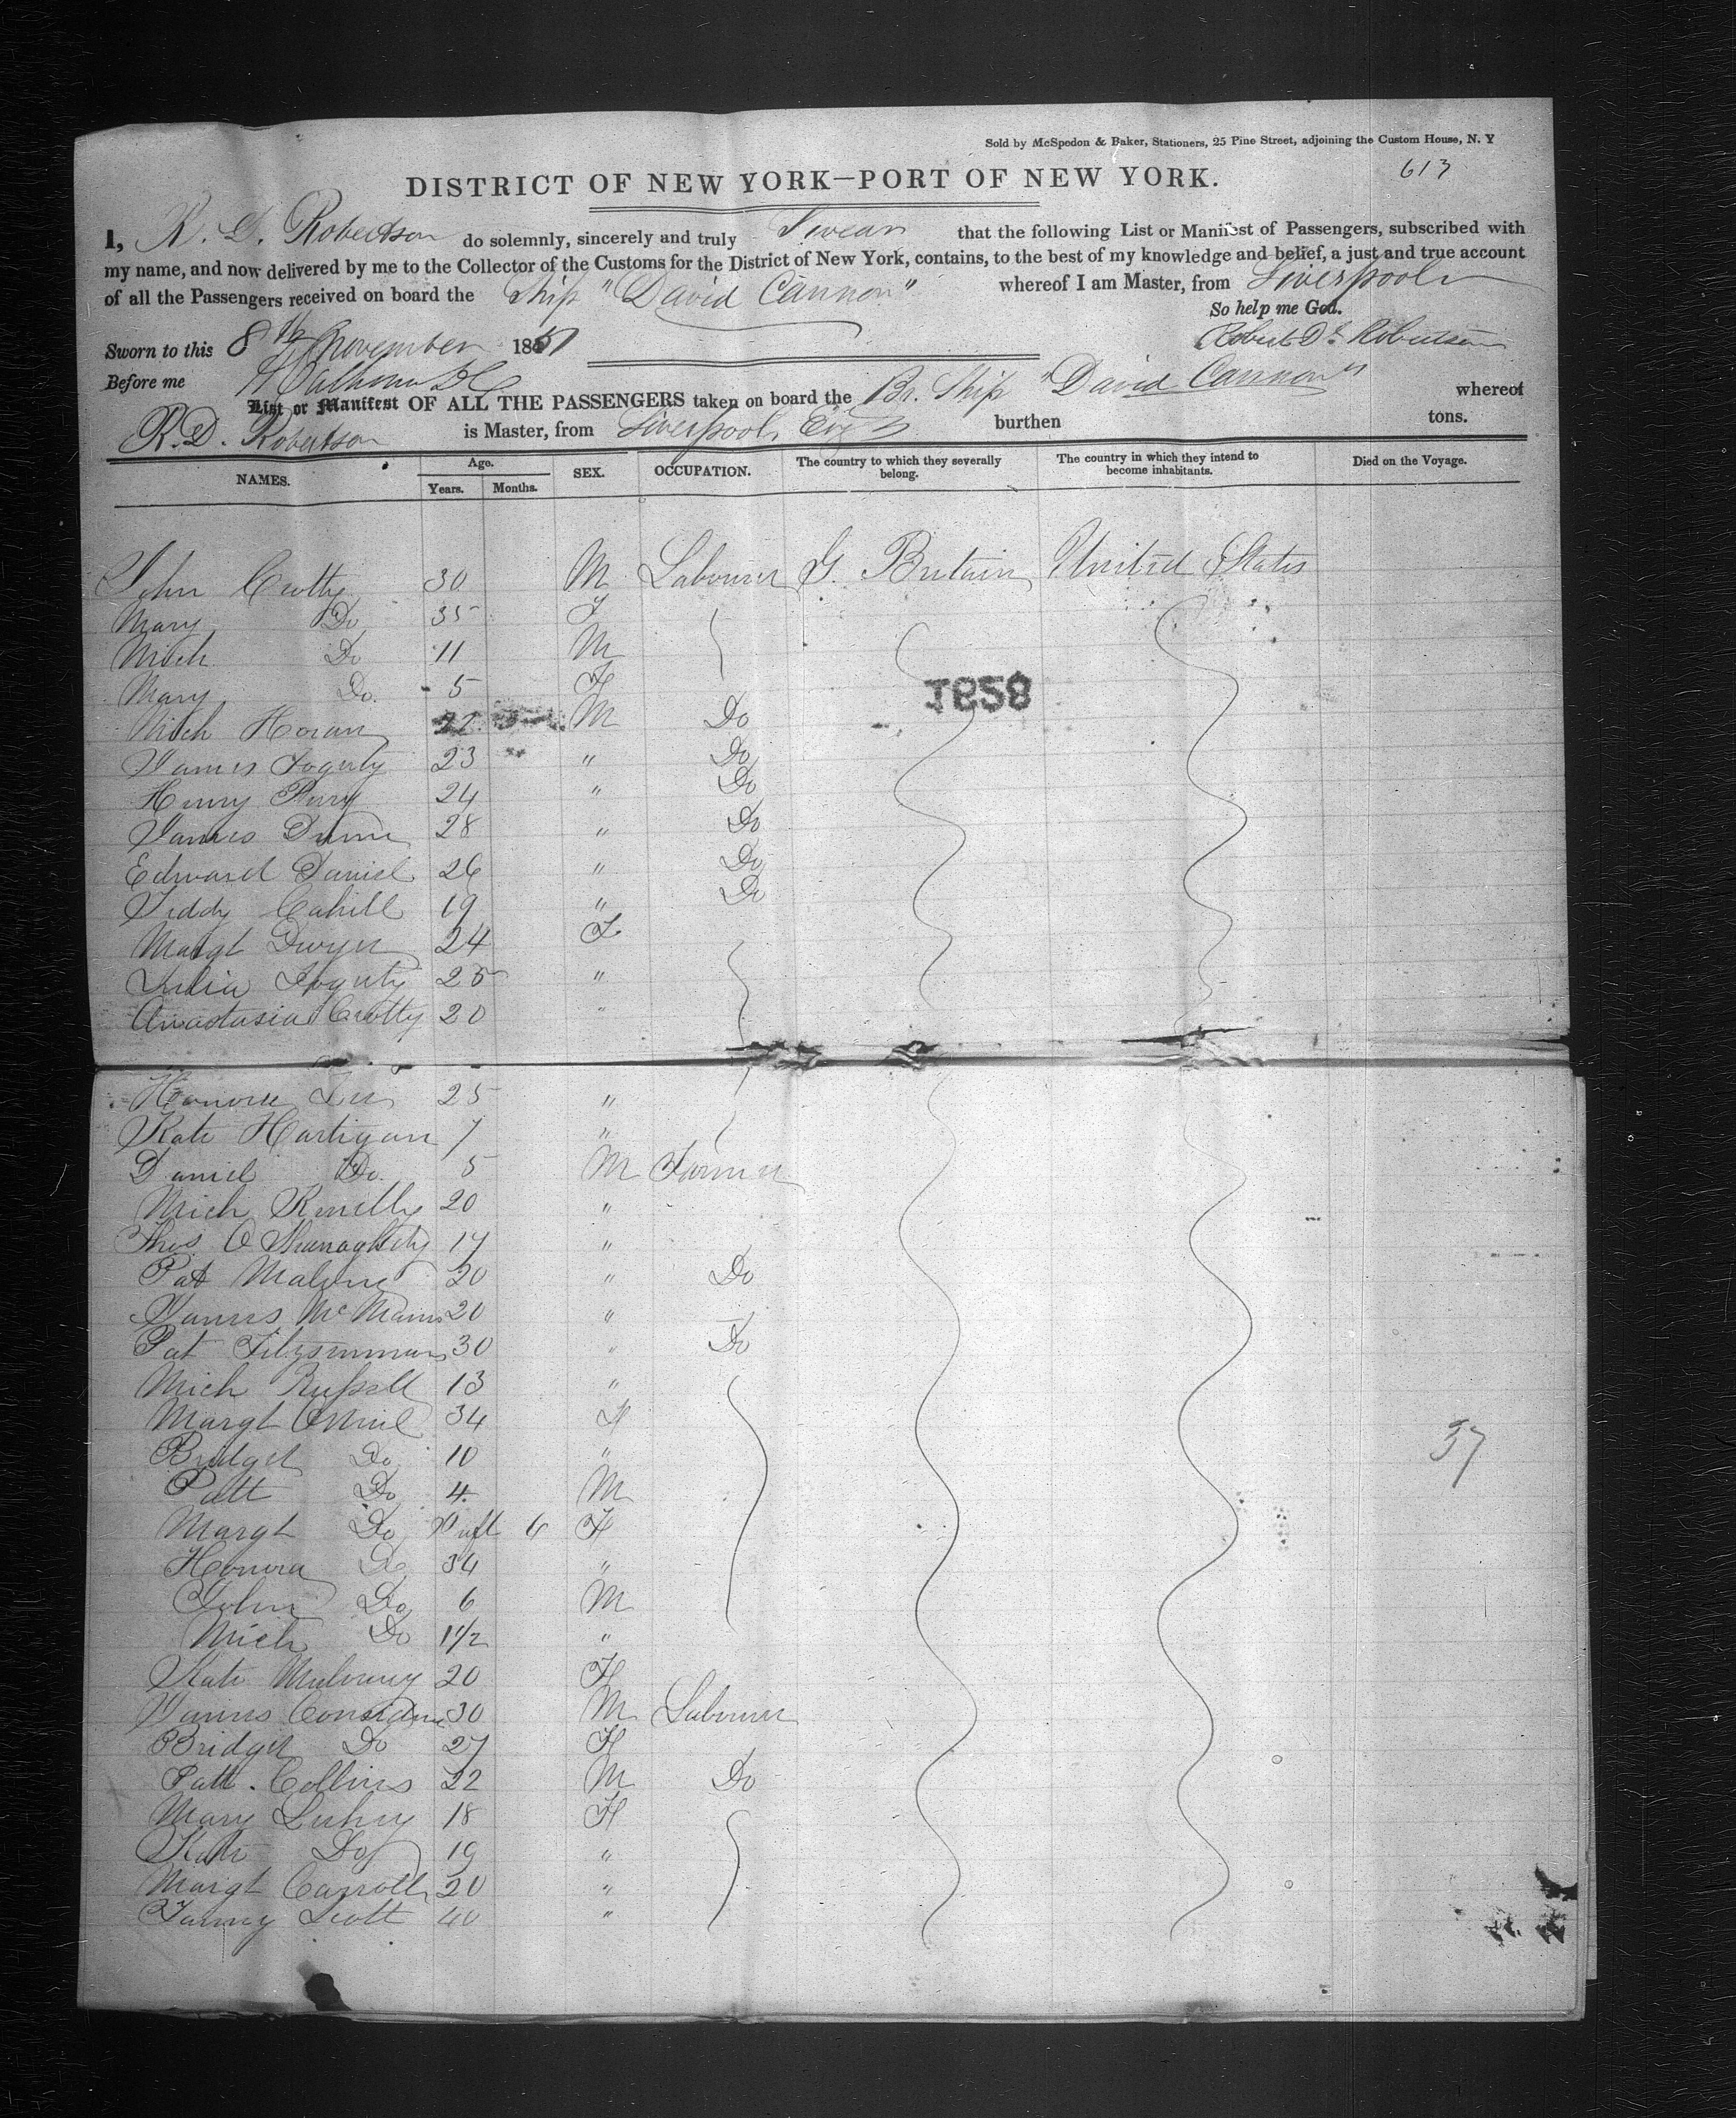 Sold by McSpedon & Baker, Stationers, 25 Pine Street, adjoining the Custom House, N. Y
613
DISTRICT OF NEW YORK—PORT OF NEW YORK.
I, R. D. Robertson do solemnly, sincerely and truly Swear that the following List or Manifest of Passengers, subscribed with
my name, and now delivered by me to the Collector of the Customs for the District of New York, contains, to the best of my knowledge and belief, a just and true account
of all the Passengers received on board the Ship "David Cannon" whereof I am Master, from Liverpool
So help me God.
Sworn to this 8th November 1851 Robert D. Robertson
Before me
List or Manifest OF ALL THE PASSENGERS taken on board the Br. Ship "David Cannon" whereof
R. D. Robertson is Master, from Liverpool, burthen tons.
NAMES. Age. Years. Months. SEX. OCCUPATION. The country to which they severally belong. The country in which they intend to become inhabitants. Died on the Voyage.
John Crotty 30 M Labourer G. Britain United States
Mary Do 35 F
Mich Do 11 M
Mary Do. 5 F
1858
Mich Horan 22 M Do
James Fogerty 23 " Do
Henry 24 " Do
James Dunn 28 " Do
Edward Daniel 26 " Do
Teddy Cahill 19 " Do
Margt Dwyer 24 F
Julia Fogerty 25 "
Anastasia Crotty 20 "
25 "
Kate Hartigan 7 "
Daniel Do. 5 M Farmer
Mich 20 "
Thos O Shanaghsty 17 "
Pat Malone 20 " Do
James McMann 20 "
Pat Fitzsimmons 30 " Do
Mich Russell 13 "
Margt ONeil 34 F
Bridget Do 10 "
Patt Do 4 M
Margt Do Inft 6 F
Honora Do 34 "
John Do 6 M
Mich Do 1 1/2 "
Kate 20 F
James Considine 30 M Labourer
Bridget Do 27 F
Patt. Collins 22 M Do
Mary Leahy 18 F
Kate Do 19 "
Margt Carroll 20 "
Fanny Scott 40 "
37